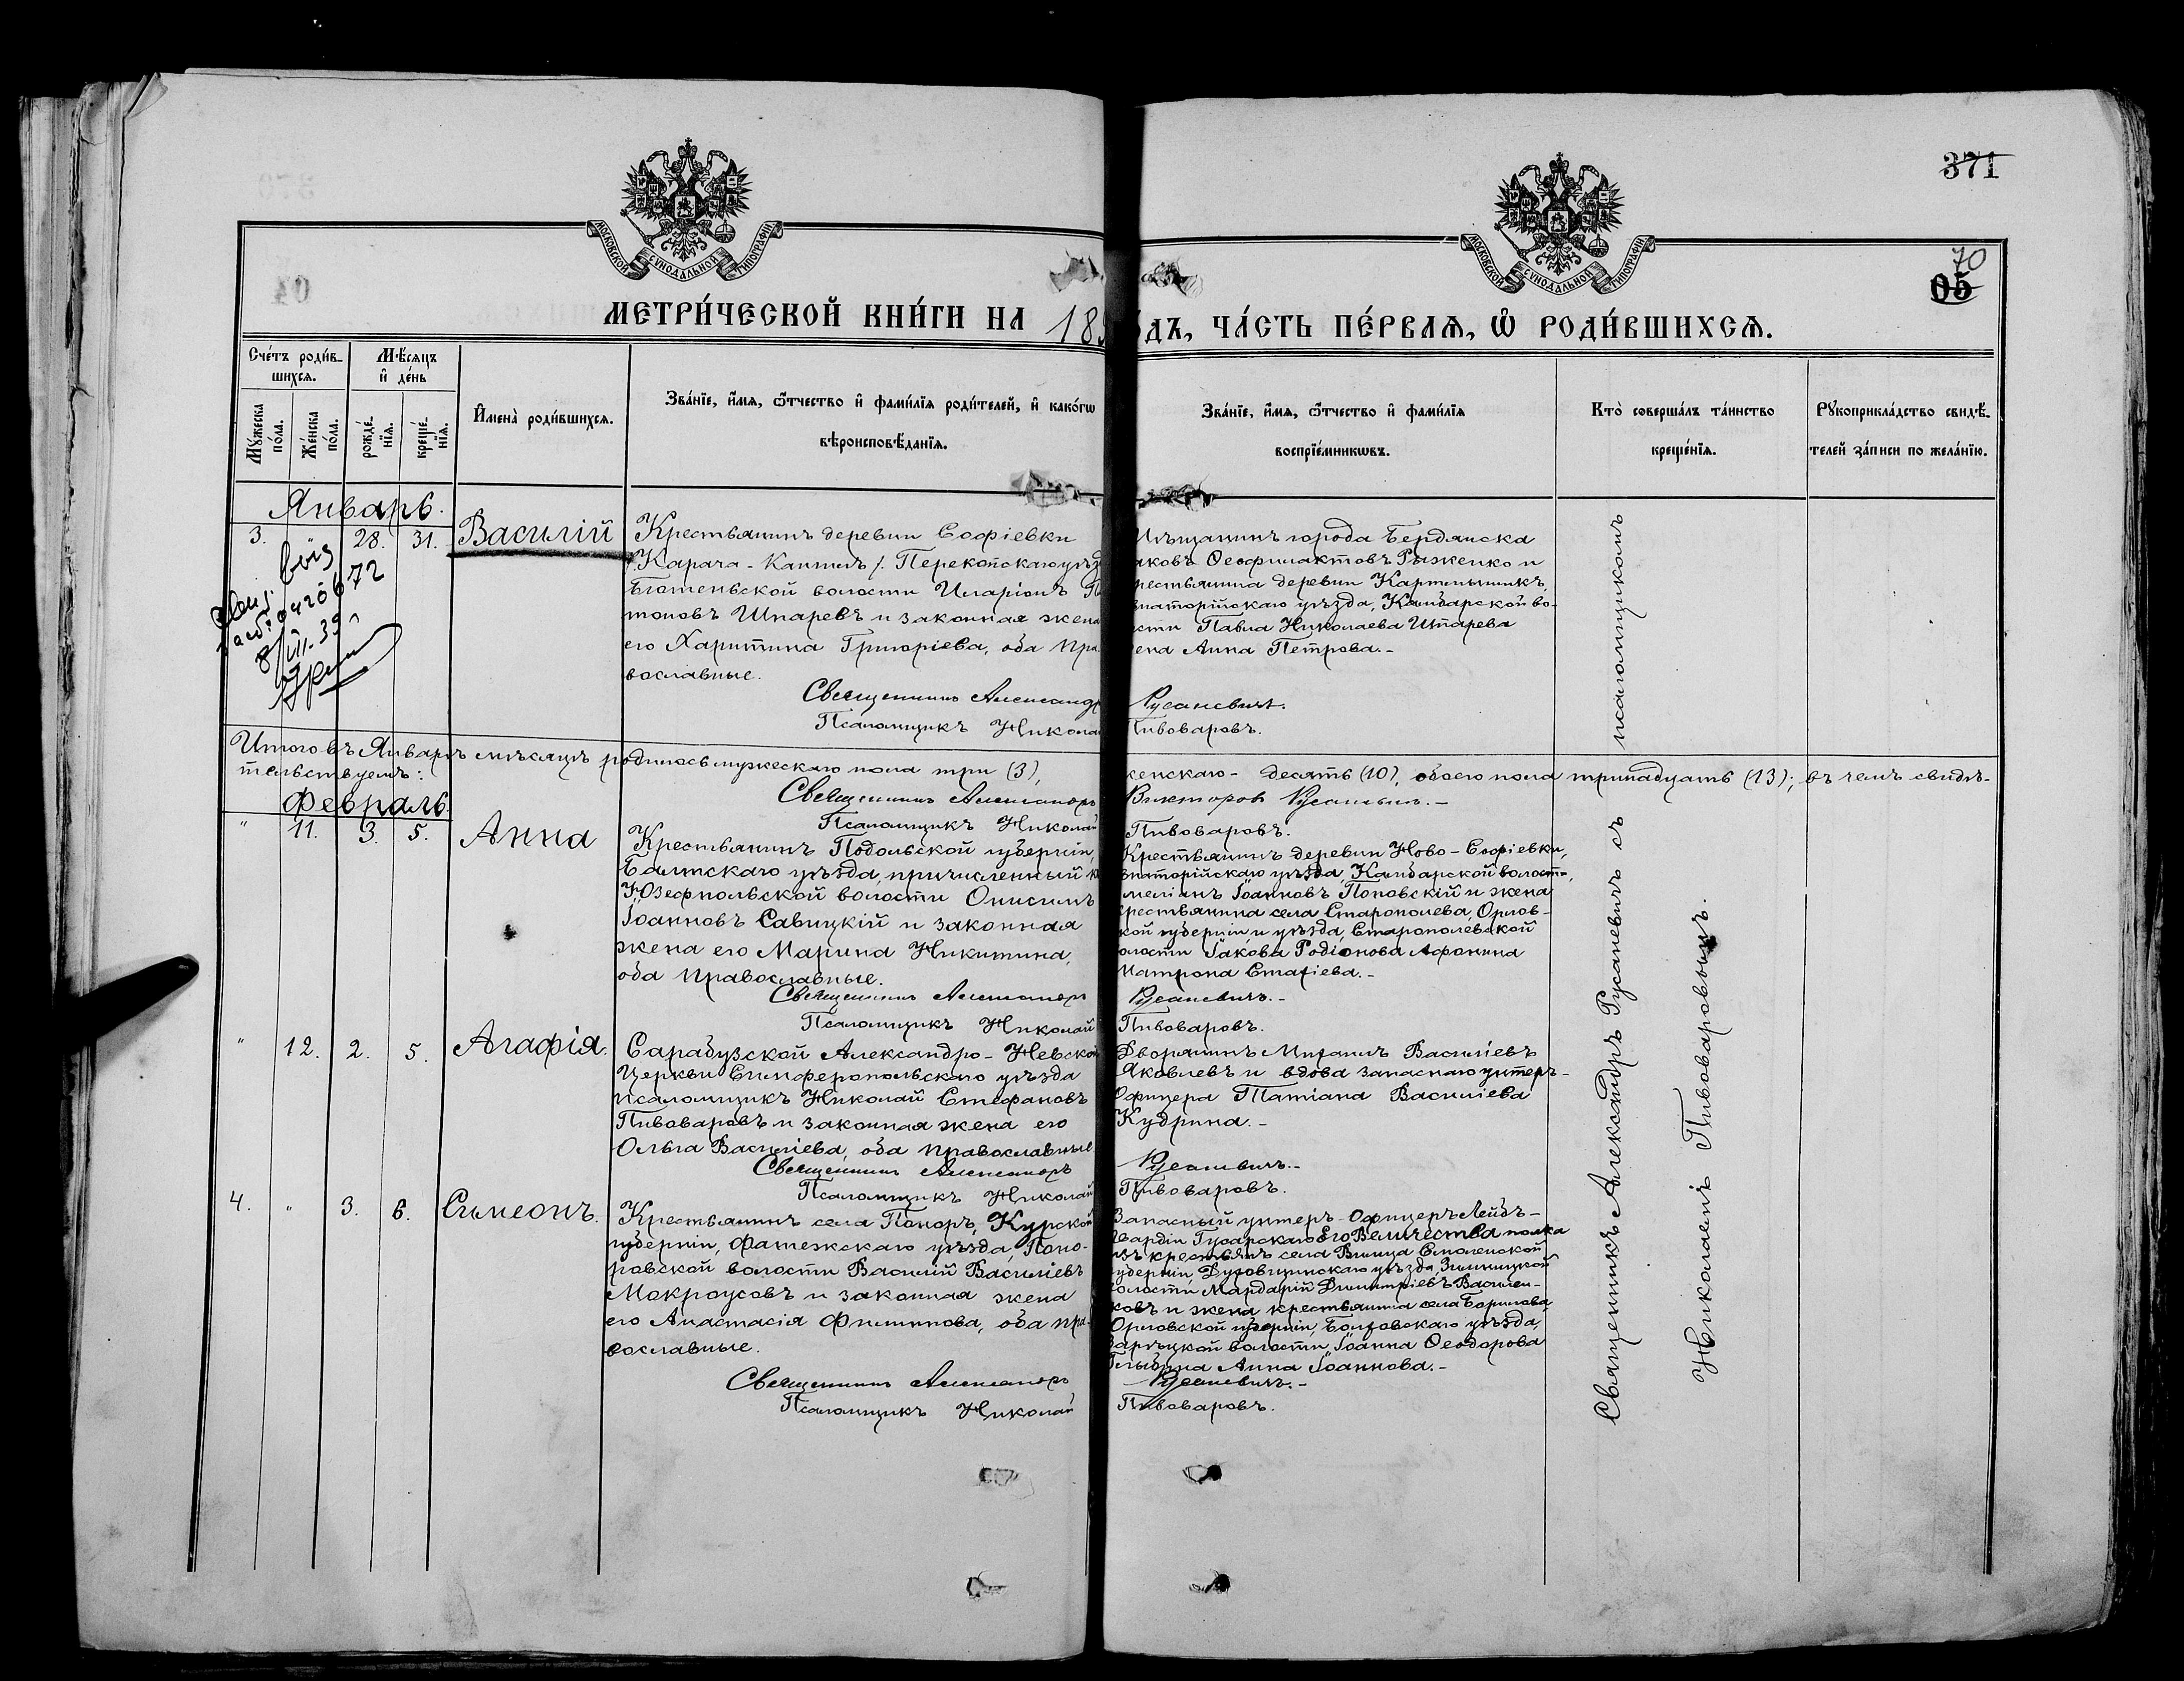 371
70
05
МОСКОВСКОЙ СѴНОДАЛЬНОЙ ТИПОГРАФІИ
МОСКОВСКОЙ СѴНОДАЛЬНОЙ ТИПОГРАФІИ
МЕТРИ́ЧЕСКОЙ КНИ́ГИ НА 18
ДЪ, ЧА́СТЬ ПЕ́РВАѦ, Ѡ РОДИ́ВШИХСѦ.
Сче́тъ роди́в-
шихсѧ.
Мѣ́сѧцъ
и҆ де́нь
Мꙋ́жеска
по́ла.
Же́нска
по́ла.
рожде́-
нїѧ.
креще́-
нїѧ.
И҆мена̀ роди́вшихсѧ.
Зва́нїе, и҆́мѧ, ѻ҆́тчество и҆ фами́лїѧ роди́телей, и҆ како́гѡ
вѣроисповѣ́данїѧ.
Зва́нїе, и҆́мѧ, ѻ҆́тчество и҆ фами́лїѧ
воспрїе́мникѡвъ.
Кто̀ соверша́лъ та́инство
креще́нїѧ.
Рꙋкоприкла́дство свидѣ́-
телей за́писи по жела́нїю.
Январь.
3. 28. 31. Василій
Крестьянинъ деревни Софіевки
/Карача-Кангилъ/. Перекопскаго уѣз
Богемьской волости Иларіонъ
тоновъ Шпаревъ и законная жена
его Харитина Григоріева, оба пра-
вославные.
Священникъ Александръ
Псаломщикъ Николай
0420672
8/III.39
ѣщанинъ города Бердянска
аковъ Ѳеофилактовъ Рыженко и
рестьянина деревни
впаторійскаго уѣзда, Камбарской во-
сти Павла Николаева Шпарева
ена Анна Петрова.-
Русаневичъ.
Пивоваровъ.
Итого въ Январѣ мѣсяцѣ родилось мужескаго пола три (3), женскаго - десять (10), обоего пола тринадцать (13); въ чемъ свидѣ-
тельствуемъ:
Священникъ Александръ Викторовъ Русаневичъ.-
Псаломщикъ Николай Пивоваровъ.
Февраль.
" 11. 3. 5. Анна
Крестьянинъ Подольской губерніи,
Балтскаго уѣзда, причисленный к
Юзефпольской волости Онисимъ
Іоанновъ Савицкій и законная
жена его Марина Никитина,
оба православные.
Священникъ Александръ
Псаломщикъ Николай
Крестьянинъ деревни Ново-Софіевки,
впаторійскаго уѣзда, Камбарской волости,
меліанъ Іоанновъ Поповскій и жена
крестьянина села Старополева, Орлов-
кой губерніи и уѣзда, Старополевской
олости Іакова Родіонова Афонина
Матрона Стахіева.-
Русаневичъ.-
Пивоваровъ.
" 12. 2. 5. Агафія.
Сарабузской Александро-Невской
Церкви Симферопольскаго уѣзда
псаломщикъ Николай Стефановъ
Пивоваровъ и законная жена его
Ольга Васильева, оба православные
Священникъ Александръ
Псаломщикъ Николай
Дворянинъ Михаилъ Васильевъ
Яковлевъ и вдова запаснаго унтеръ-
Офицера Татіана Васильева
Кудрина.-
Русаневичъ.-
Пивоваровъ.
4. " 3. 6. Симеонъ.
Крестьянинъ села Поноръ, Курской
губерніи, Фатежскаго уѣзда, Поно-
ровской волости Василій Васильевъ
Мокроусовъ и законная жена
его Анастасія Филиппова, оба пра-
вославные.
Священникъ Александръ
Псаломщикъ Николай
Запасный унтеръ-Офицеръ Лейбъ-
Гвардіи Гусарскаго Его Величества полка
изъ крестьянъ села Смоленской
губерніи, Духовщинскаго уѣзда,
олости, Мардарій Димитріевъ Василен-
ковъ и жена крестьянина села Борилова
Орловской губерніи, Болховскаго уѣзда,
волости, Іоанна Ѳеодорова
Анна Іоаннова.-
Русаневичъ.-
Пивоваровъ.
Священникъ Александръ Русаневичъ съ псаломщикомъ
Николаемъ Пивоваровымъ.